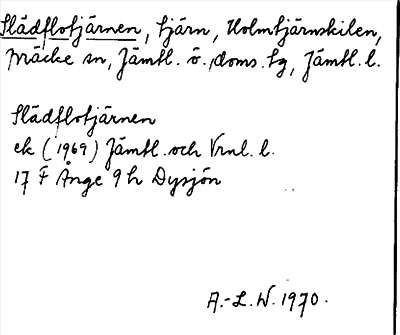 Slädflotjärnen, tjärn, Holmtjärnskilen,
Bräcke sn, Jämtl. ö. doms. tg, Jämtl. l.
Slädflotjärnen
ek (1969) Jämtl. och Vrnl. l.
17 F Ånge 9 h Dysjön
A.-L. W. 1970.